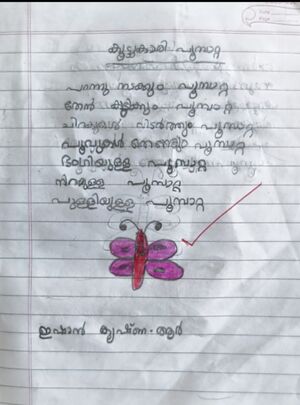 കൂട്ടുകാരി പൂമ്പാറ്റ
പറന്നു നടക്കും പൂമ്പാറ്റ
തേൻ കുടിക്കും പൂമ്പാറ്റ
ചിറകുകൾ വിടർത്തും പൂമ്പാറ്റ
പൂവുകൾ തേടും പൂമ്പാറ്റ
ഭംഗിയുള്ള പൂമ്പാറ്റ
നിറമുള്ള പൂമ്പാറ്റ
പുള്ളിയുള്ള പൂമ്പാറ്റ
ഇഷാൻ കൃഷ്ണ. ആർ